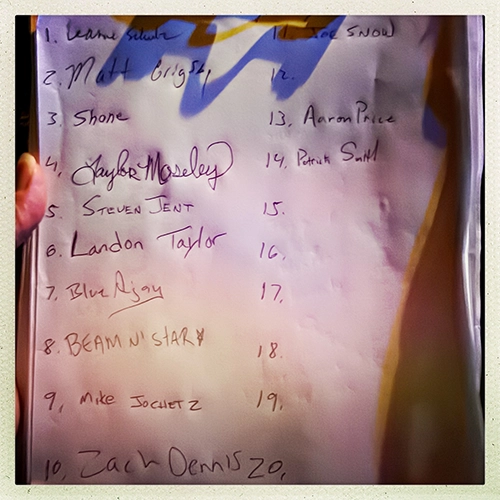 1. Leanne Schulz
2. Matt Grigsby
3. Shane
4. Taylor Moseley
5. STEVEN JENT
6. Landon Taylor
7. Blue Ajay
8. BEAM N' STAR
9, Mike JOCHETZ
10, Zach Dennis
11. JOE SNOW
12.
13, Aaron Price
14, Patrick
15.
16.
17,
18.
19.
20,